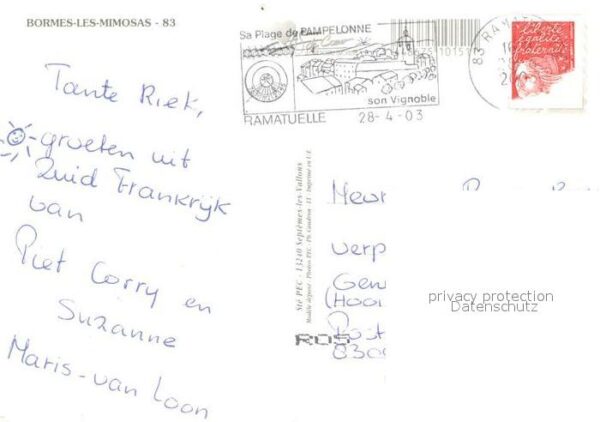 BORMES-LES-MIMOSAS - 83
Sa Plage de PAMPELONNE
son Vignoble
RAMATUELLE 28-4-03
83 RAMA
liberté
égalité
fraternité
Tante Riek,
groeten uit
Zuid Frankrijk
van
Piet Corry en
Suzanne
Maris-van Loon
Sté PEC - 13240 Septèmes-les-Vallons
Mevr
verp
Gen
(Hooi
Post
830
privacy protection
Datenschutz
ROS